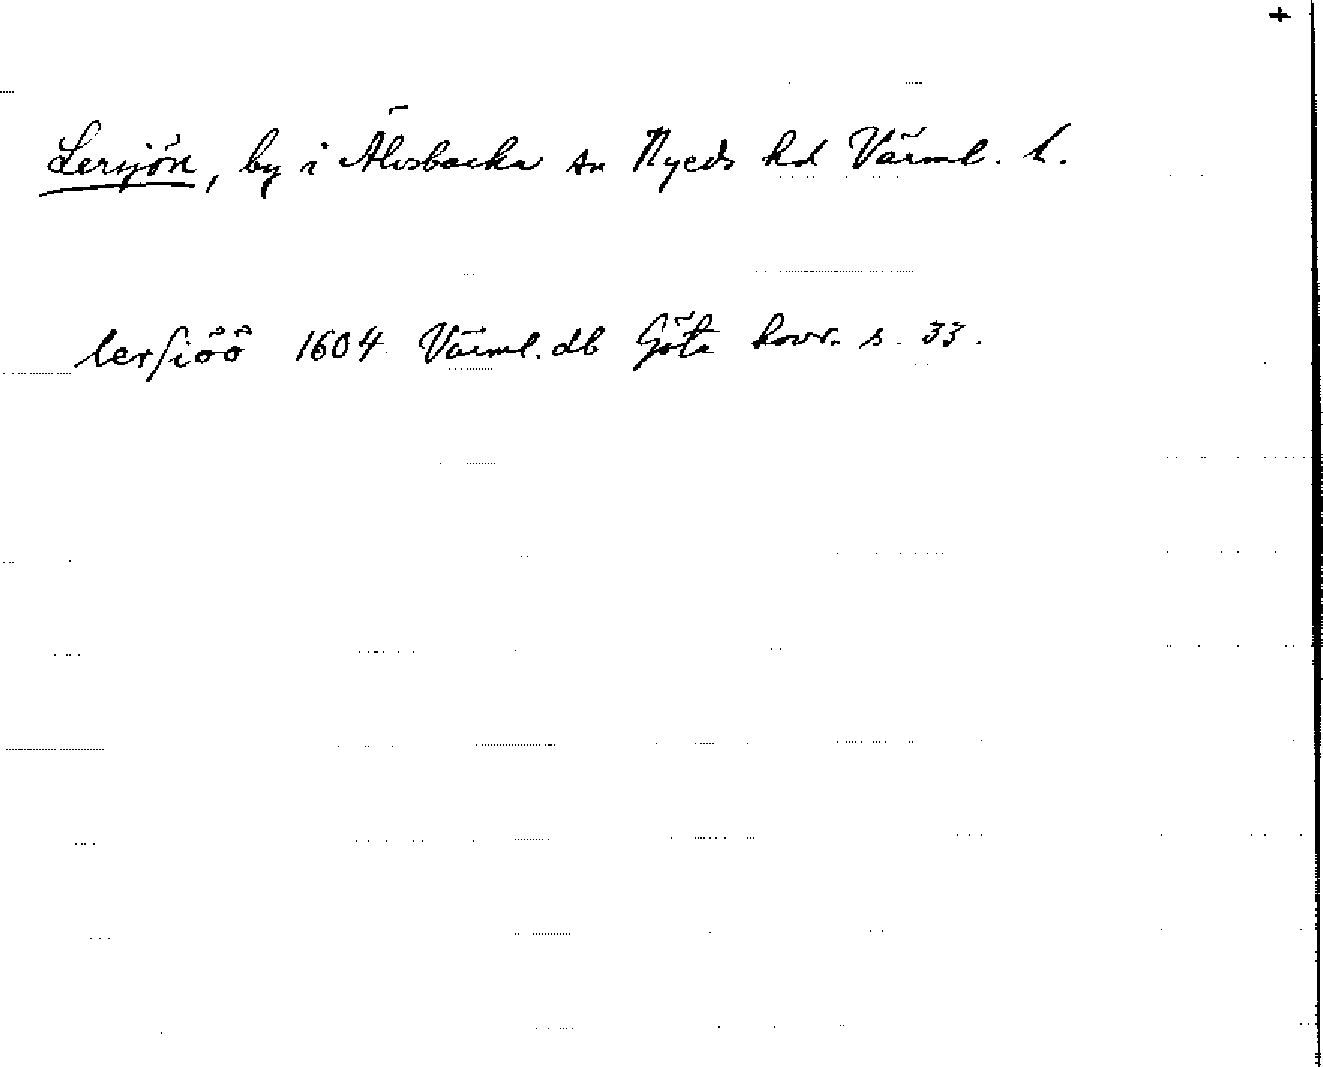 +
Lersjön, by i Älvsbacka sn Nyeds hd Värml. l.
lersiöö 1604 Värml. db Göta hovr. s. 33.